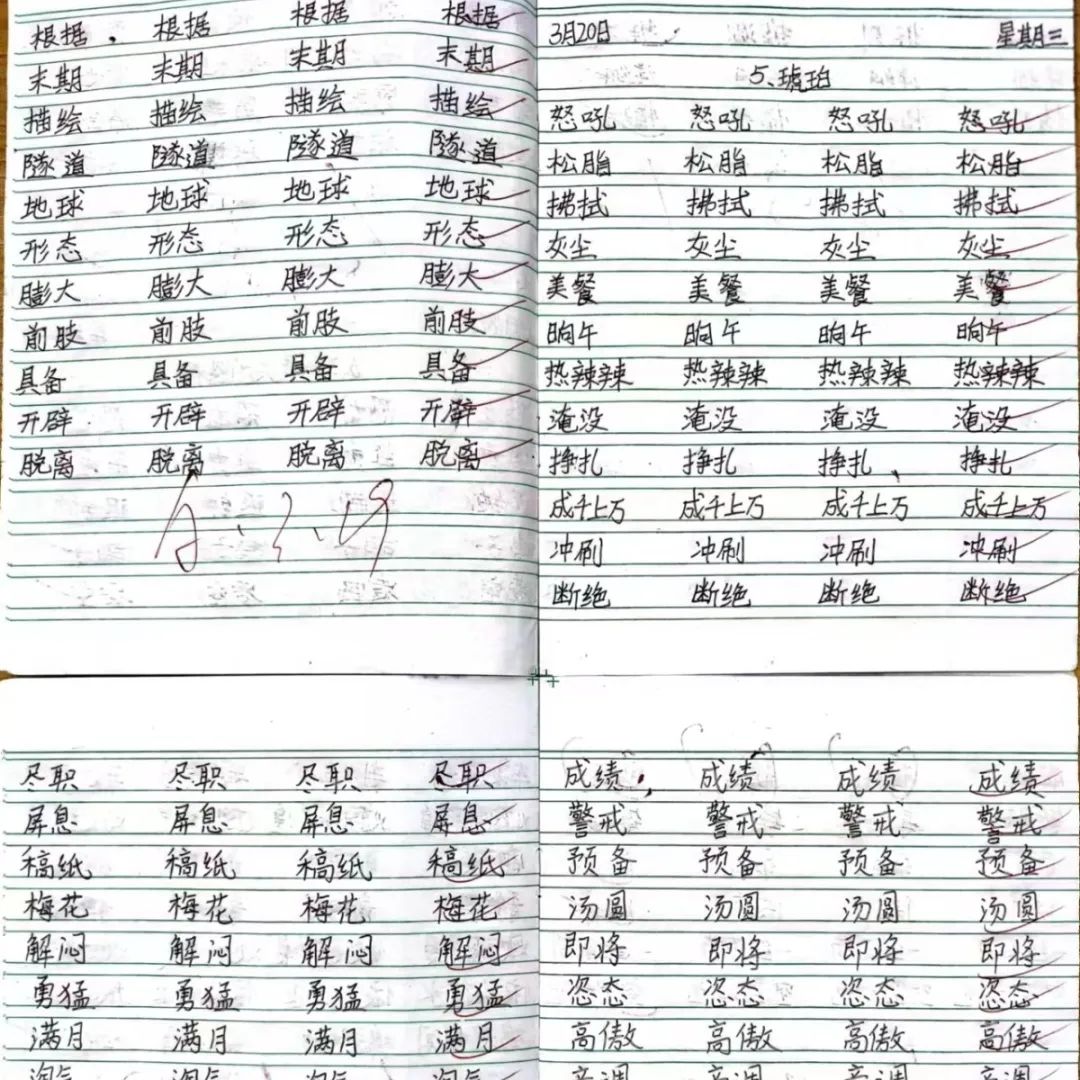 根据 根据 根据 根据
末期 末期 末期 末期
描绘 描绘 描绘 描绘
隧道 隧道 隧道 隧道
地球 地球 地球 地球
形态 形态 形态 形态
膨大 膨大 膨大 膨大
前肢 前肢 前肢 前肢
具备 具备 具备 具备
开辟 开辟 开辟 开辟
脱离 脱离 脱离 脱离
3月20日 星期三
5、琥珀
怒吼 怒吼 怒吼 怒吼
松脂 松脂 松脂 松脂
拂拭 拂拭 拂拭 拂拭
灰尘 灰尘 灰尘 灰尘
美餐 美餐 美餐 美餐
晌午 晌午 晌午 晌午
热辣辣 热辣辣 热辣辣 热辣辣
淹没 淹没 淹没 淹没
挣扎 挣扎 挣扎 挣扎
成千上万 成千上万 成千上万 成千上万
冲刷 冲刷 冲刷 冲刷
断绝 断绝 断绝 断绝
尽职 尽职 尽职 尽职
屏息 屏息 屏息 屏息
稿纸 稿纸 稿纸 稿纸
梅花 梅花 梅花 梅花
解闷 解闷 解闷 解闷
勇猛 勇猛 勇猛 勇猛
满月 满月 满月 满月
成绩 成绩 成绩 成绩
警戒 警戒 警戒 警戒
预备 预备 预备 预备
汤圆 汤圆 汤圆 汤圆
即将 即将 即将 即将
姿态 姿态 姿态 姿态
高傲 高傲 高傲 高傲
音调 音调 音调 音调